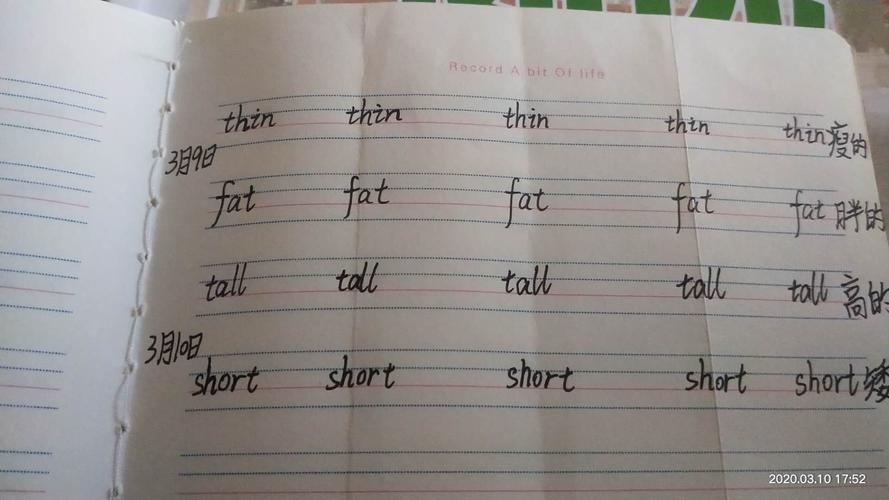 Record A bit Of life
thin thin thin thin thin瘦的
3月9日
fat fat fat fat fat 胖的
tall tall tall tall tall 高的
3月10日
short short short short short矮
2020.03.10 17:52